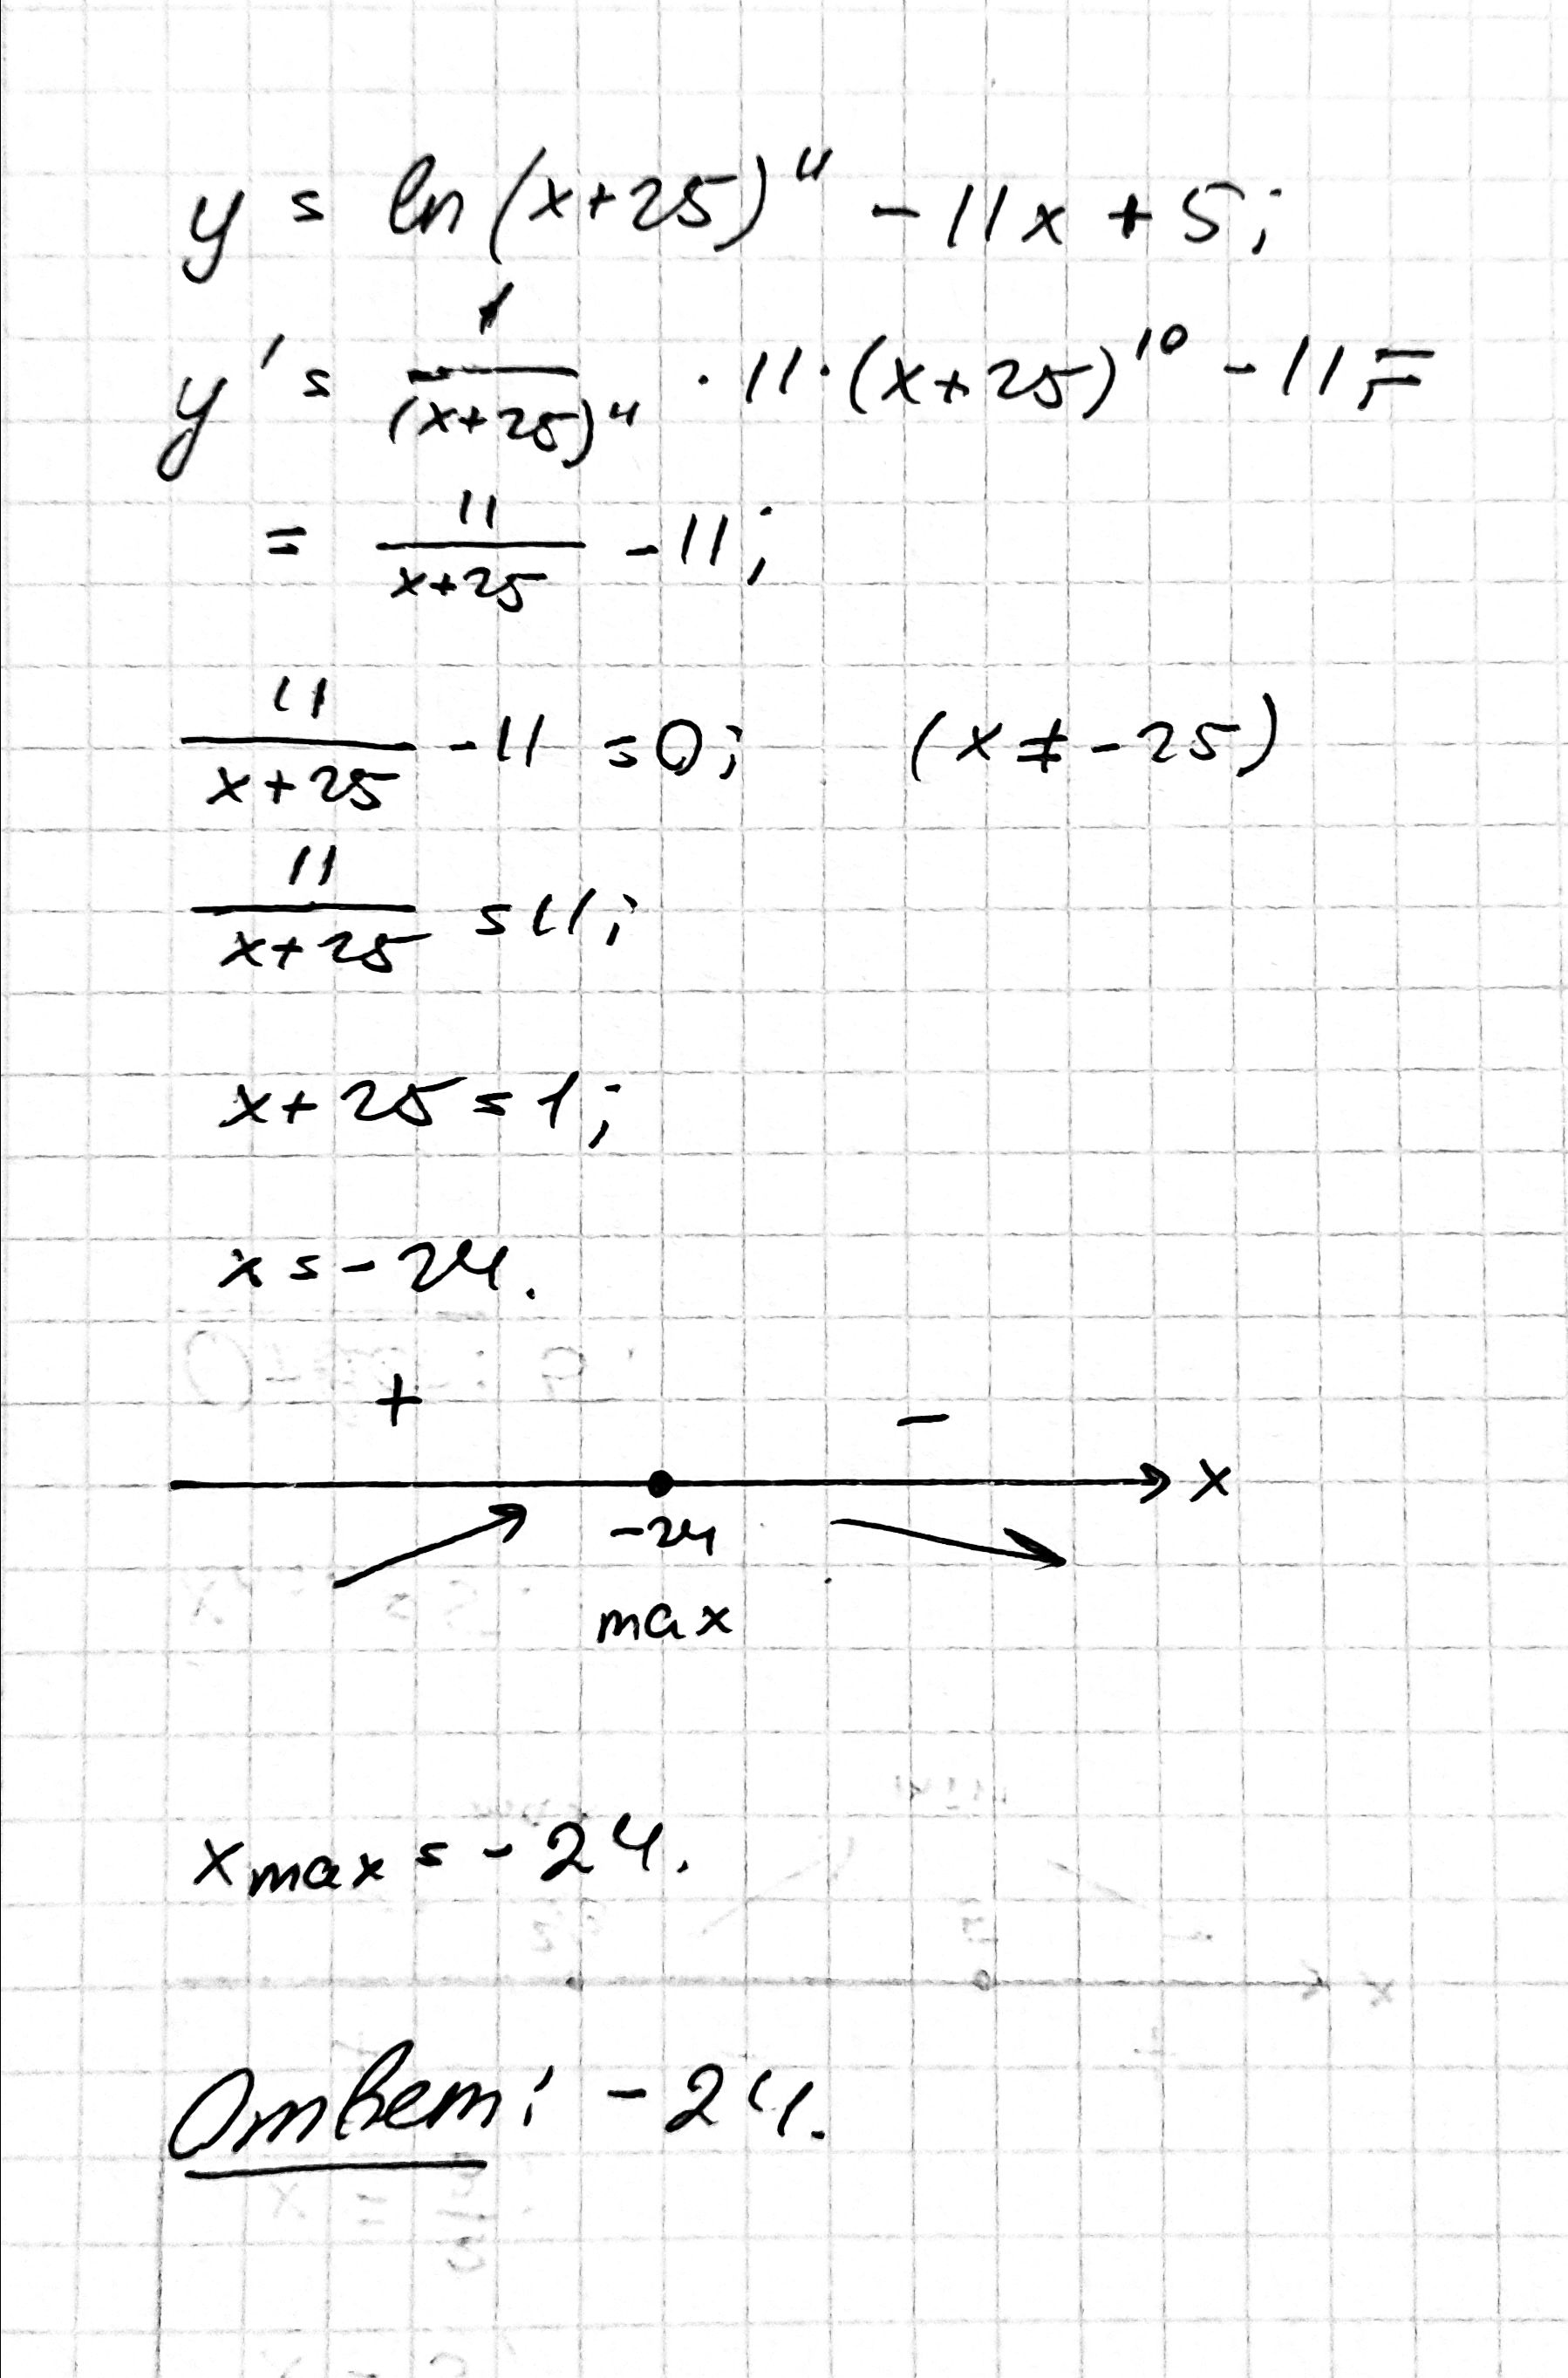 y = ln(x+25)^11 - 11x + 5;
y' = 1/(x+25)^11 · 11 · (x+25)^10 - 11 =
= 11/(x+25) - 11;
11/(x+25) - 11 = 0; (x ≠ -25)
11/(x+25) = 11;
x + 25 = 1;
x = -24.
+ -
x
-24
max
x max = -24.
Ответ: -24.